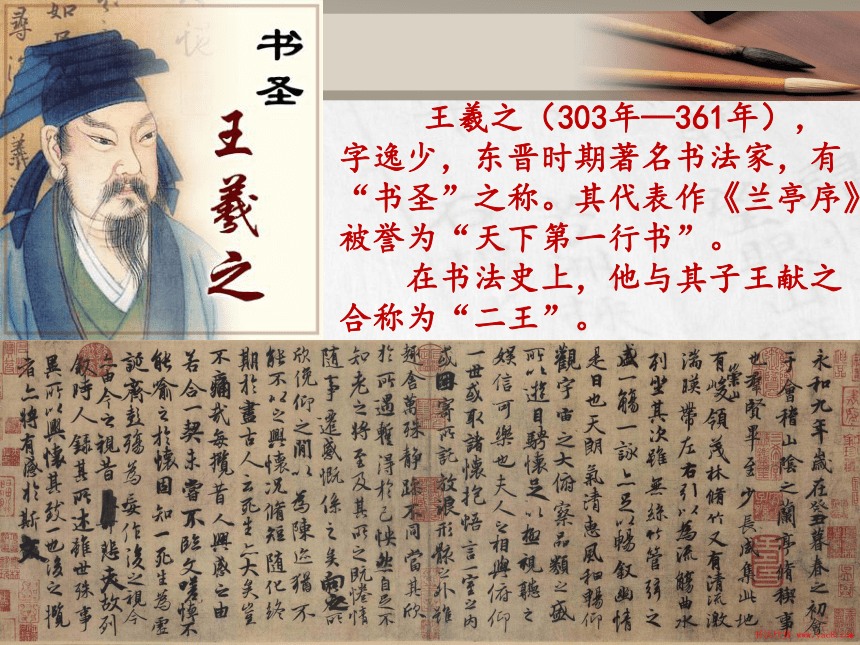 书圣
王羲之
王羲之（303年—361年），
字逸少，东晋时期著名书法家，有
“书圣”之称。其代表作《兰亭序》
被誉为“天下第一行书”。
在书法史上，他与其子王献之
合称为“二王”。
永和九年歲在癸丑暮春之初會
于會稽山陰之蘭亭脩稧事
也羣賢畢至少長咸集此地
有崇山峻領茂林脩竹又有清流激
湍暎帶左右引以為流觴曲水
列坐其次雖無絲竹管弦之
盛一觴一詠亦足以暢叙幽情
是日也天朗氣清惠風和暢仰
觀宇宙之大俯察品類之盛
所以遊目騁懷足以極視聽之
娛信可樂也夫人之相與俯仰
一世或取諸懷抱悟言一室之內
或因寄所託放浪形骸之外雖
趣舍萬殊靜躁不同當其欣
於所遇暫得於己怏然自足不
知老之將至及其所之既惓情
隨事遷感慨係之矣向之所
欣俛仰之閒以為陳迹猶不
能不以之興懷況脩短隨化終
期於盡古人云死生亦大矣豈
不痛哉每攬昔人興感之由
若合一契未嘗不臨文嗟悼不
能喻之於懷固知一死生為虛
誕齊彭殤為妄作後之視今
亦由今之視昔悲夫故列
叙時人錄其所述雖世殊事
異所以興懷其致一也後之攬
者亦將有感於斯文